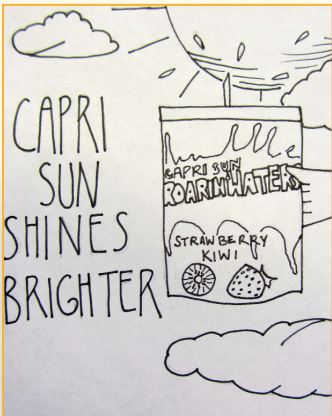 CAPRI
SUN
SHINES
BRIGHTER
CAPRI SUN
ROARIN'WATERS
STRAWBERRY
KIWI